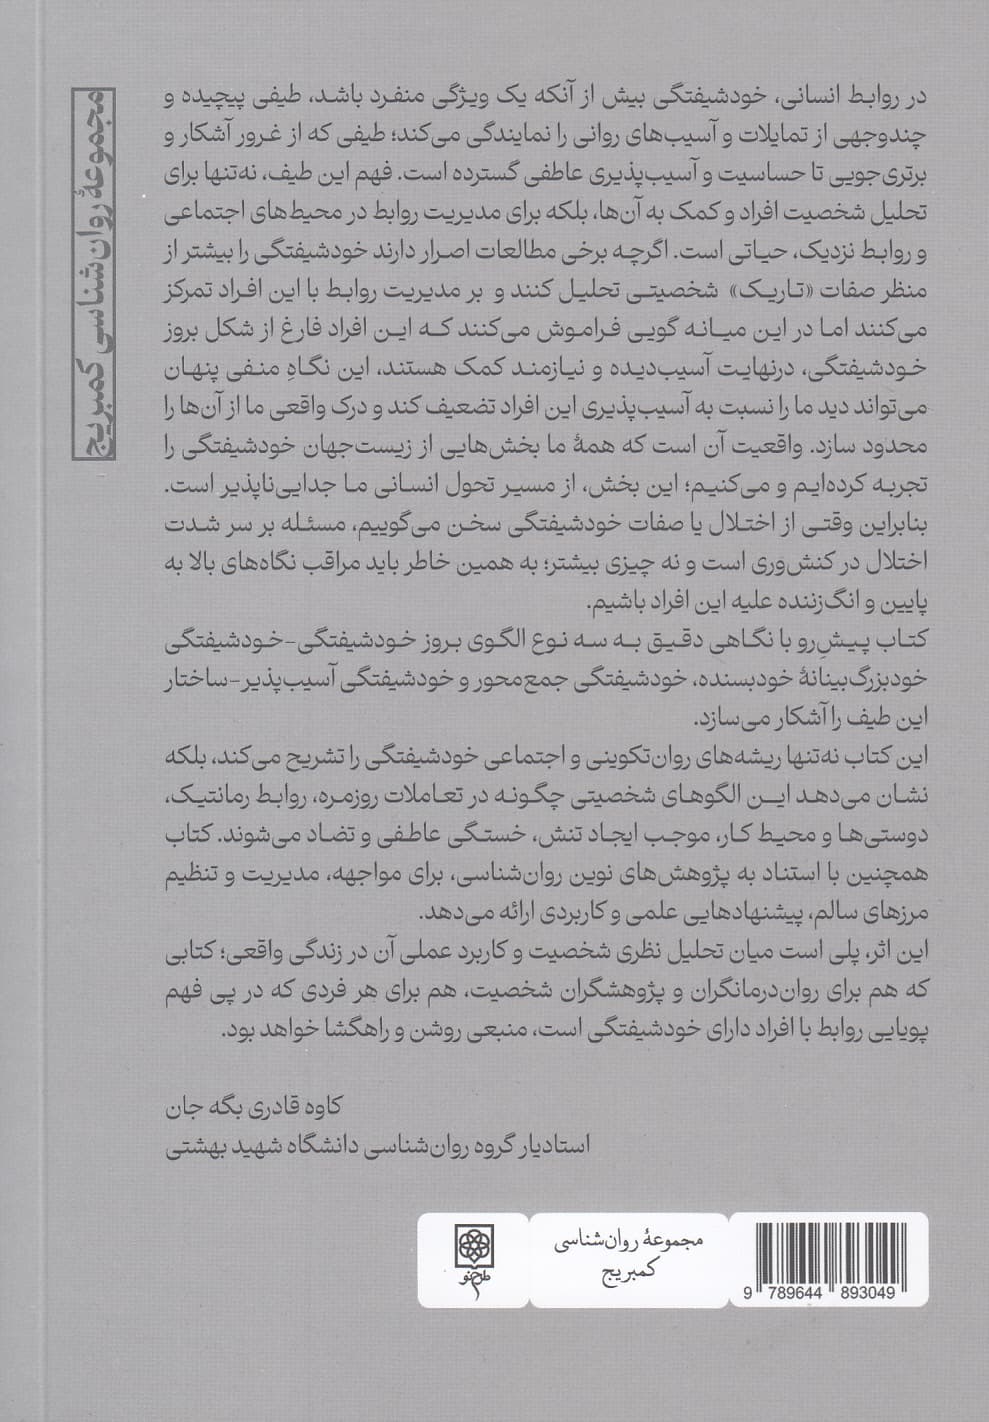 مجموعهٔ روان‌شناسی کمبریج
در روابط انسانی، خودشیفتگی بیش از آنکه یک ویژگی منفرد باشد، طیفی پیچیده و
چندوجهی از تمایلات و آسیب‌های روانی را نمایندگی می‌کند؛ طیفی که از غرور آشکار و
برتری‌جویی تا حساسیت و آسیب‌پذیری عاطفی گسترده است. فهم این طیف، نه‌تنها برای
تحلیل شخصیت افراد و کمک به آن‌ها، بلکه برای مدیریت روابط در محیط‌های اجتماعی
و روابط نزدیک، حیاتی است. اگرچه برخی مطالعات اصرار دارند خودشیفتگی را بیشتر از
منظر صفات «تاریک» شخصیتی تحلیل کنند و بر مدیریت روابط با این افراد تمرکز
می‌کنند اما در این میانه گویی فراموش می‌کنند که این افراد فارغ از شکل بروز
خودشیفتگی، درنهایت آسیب‌دیده و نیازمند کمک هستند، این نگاهِ منفی پنهان
می‌تواند دید ما را نسبت به آسیب‌پذیری این افراد تضعیف کند و درک واقعی ما از آن‌ها را
محدود سازد. واقعیت آن است که همهٔ ما بخش‌هایی از زیست‌جهان خودشیفتگی را
تجربه کرده‌ایم و می‌کنیم؛ این بخش، از مسیر تحول انسانی ما جدایی‌ناپذیر است.
بنابراین وقتی از اختلال یا صفات خودشیفتگی سخن می‌گوییم، مسئله بر سر شدت
اختلال در کنش‌وری است و نه چیزی بیشتر؛ به همین خاطر باید مراقب نگاه‌های بالا به
پایین و انگ‌زننده علیه این افراد باشیم.
کتاب پیشِ‌رو با نگاهی دقیق به سه نوع الگوی بروز خودشیفتگی-خودشیفتگی
خودبزرگ‌بینانهٔ خودبسنده، خودشیفتگی جمع‌محور و خودشیفتگی آسیب‌پذیر-ساختار
این طیف را آشکار می‌سازد.
این کتاب نه‌تنها ریشه‌های روان‌تکوینی و اجتماعی خودشیفتگی را تشریح می‌کند، بلکه
نشان می‌دهد این الگوهای شخصیتی چگونه در تعاملات روزمره، روابط رمانتیک،
دوستی‌ها و محیط کار، موجب ایجاد تنش، خستگی عاطفی و تضاد می‌شوند. کتاب
همچنین با استناد به پژوهش‌های نوین روان‌شناسی، برای مواجهه، مدیریت و تنظیم
مرزهای سالم، پیشنهادهایی علمی و کاربردی ارائه می‌دهد.
این اثر، پلی است میان تحلیل نظری شخصیت و کاربرد عملی آن در زندگی واقعی؛ کتابی
که هم برای روان‌درمانگران و پژوهشگران شخصیت، هم برای هر فردی که در پی فهم
پویایی روابط با افراد دارای خودشیفتگی است، منبعی روشن و راهگشا خواهد بود.
کاوه قادری بگه جان
استادیار گروه روان‌شناسی دانشگاه شهید بهشتی
مجموعهٔ روان‌شناسی
کمبریج
طرح‌نو
9 789644 893049